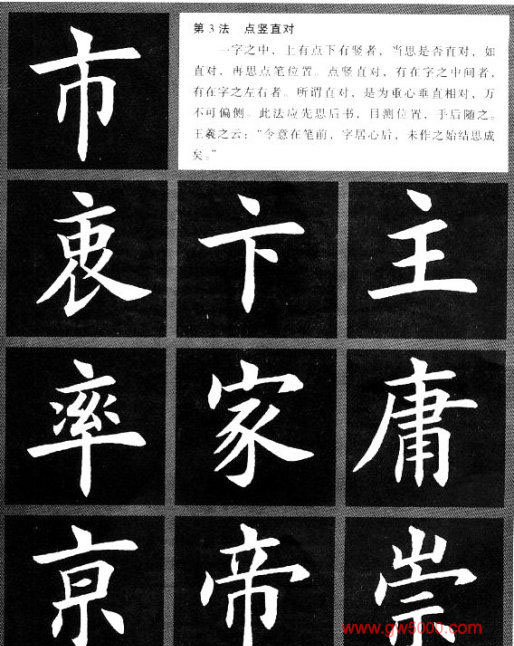 第3法 点竖直对
一字之中，上有点下有竖者，当思是否直对，如
直对，再思点笔位置。点竖直对，有在字之中间者，
有在字之左右者。所谓直对，是为重心垂直相对，万
不可偏侧。此法应先思后书，目测位置，手后随之。
王羲之云：“令意在笔前，字居心后，未作之始结思成
矣。”
市
衷 卞 主
率 家 庸
京 帝 崇
www.gw5000.com